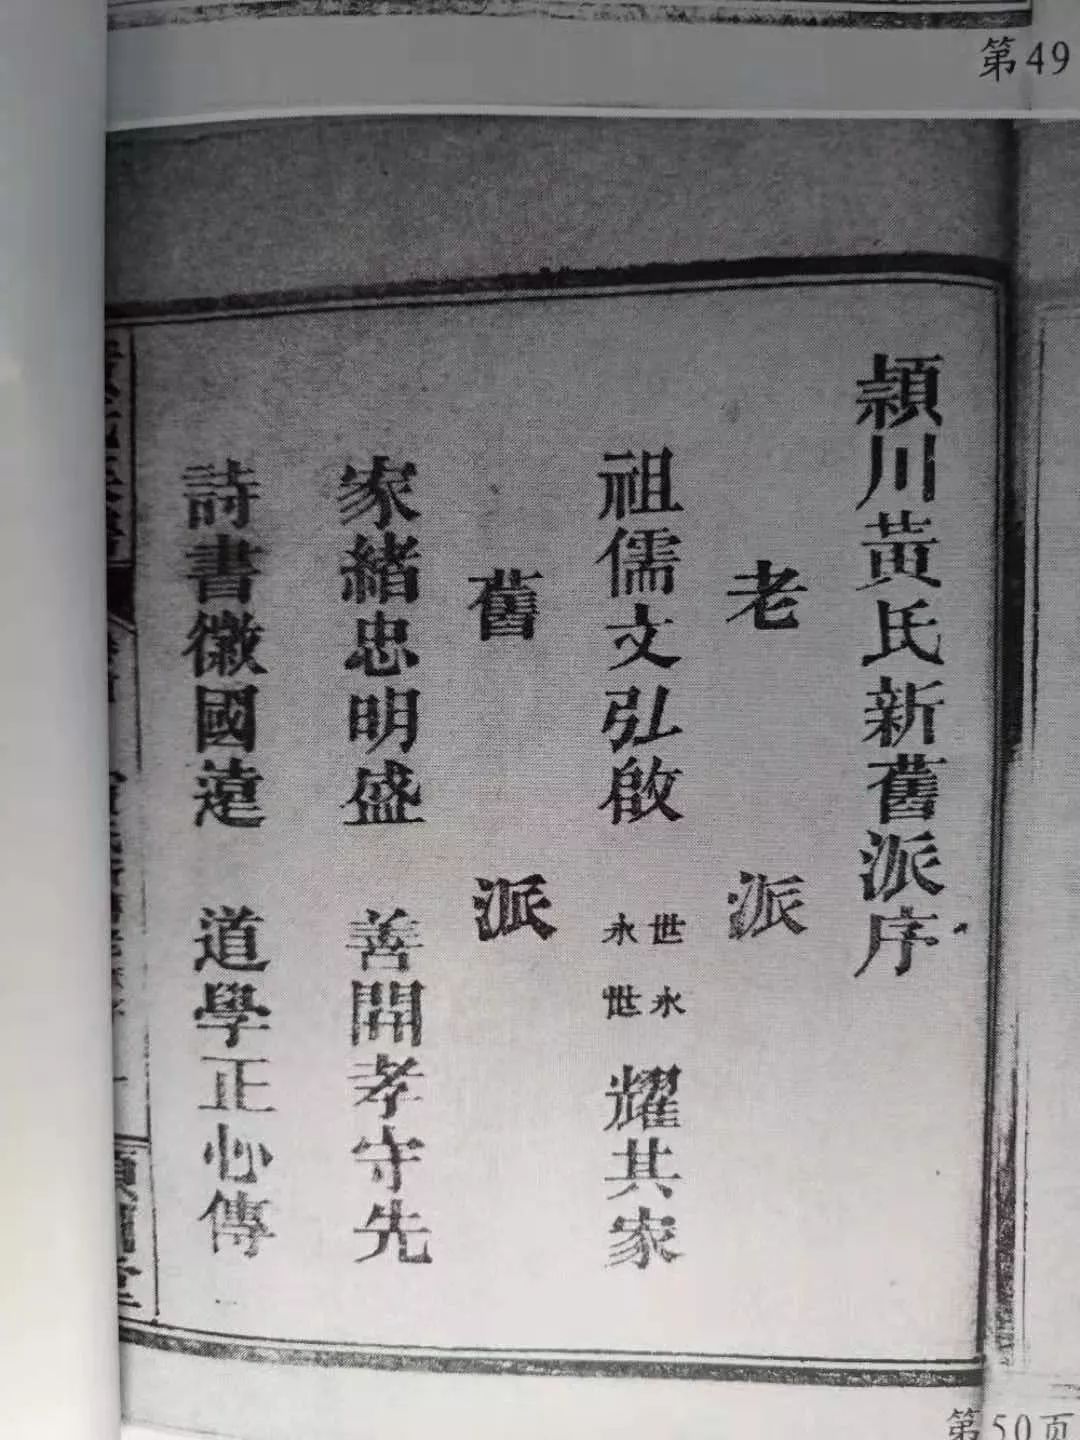 第49
潁川黃氏新舊派序
老派
祖儒文弘啟 世永 永世 耀共家
舊派
家緒忠明盛 善開孝守先
詩書徽國遠 道學正心傳
第50页